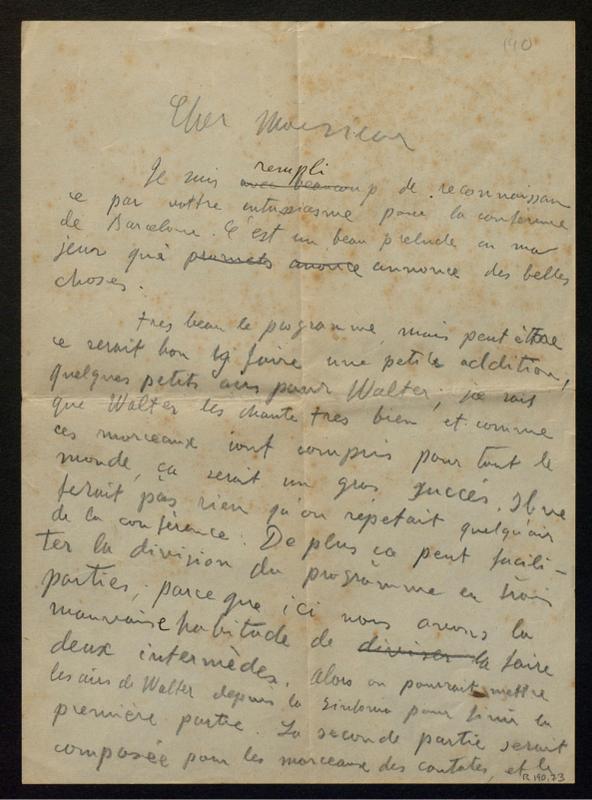 190
Cher Monsieur
rempli
Je suis avec beaucoup de reconnaissan
ce par vottre entusiasme pour la conference
de Barcelone. C'est un beau prelude en ma
jeur què promets anonce annonce des belles
choses.
tres beau le programme, mais peut èttre
ce serait bon y faire une petite addition,
quelques petits airs pour Walter; je sais
que Walter les chante tres bien et comme
ces morceaux sont compris pour tout le
monde, ça serait un gros succés. Il ne
ferait pas rien qu'on repetait quelqu'air
de la conférence. De plus ca peut facili-
ter la division du programme en trois
parties, parce que ici nous avons la
mauvaise habitude de diviser la faire
deux intermèdes. Alors on pourrait mettre
les airs de Walter depuis la Sinfonia pour finir la
première partie. La seconde partie serait
composée pour les morceaux des cantates, et le
R 190,73